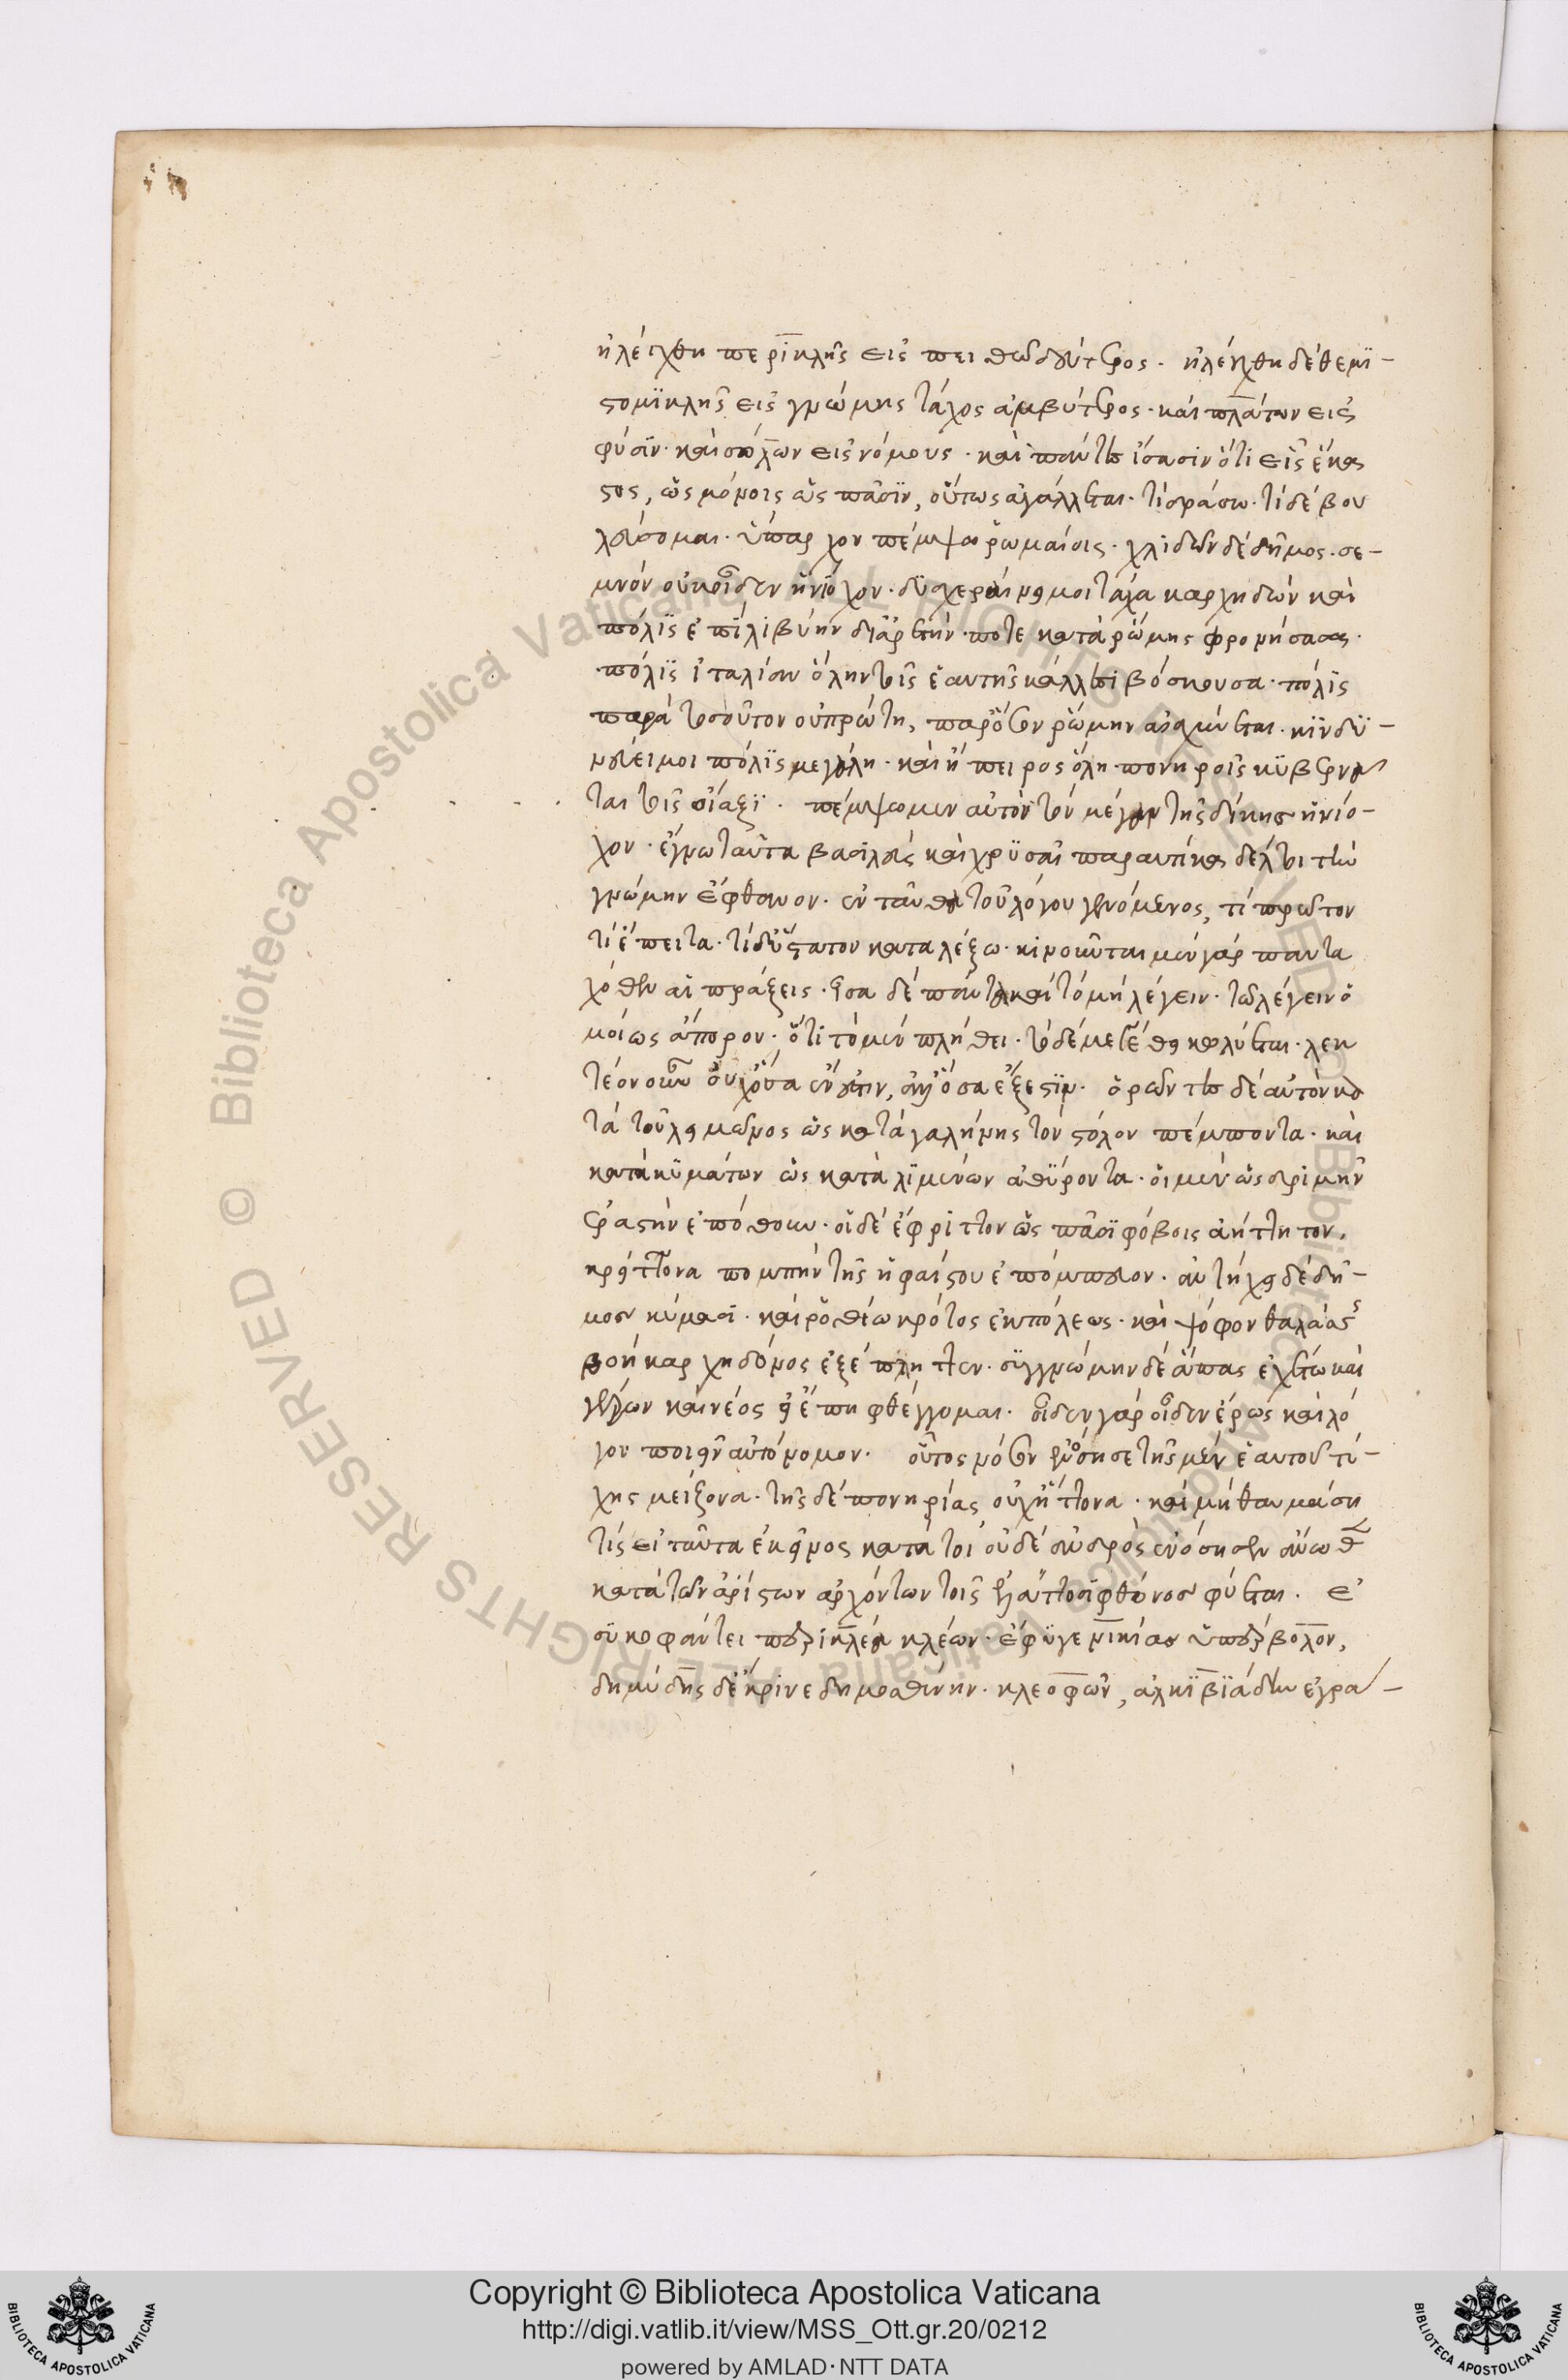 ἠλέγχθη περικλῆς εἰς πειθὼ δεύτερος. ἠλέγχθη δὲ θεμι-
στοκλῆς εἰς γνώμης τάχος ἀμβύτερος. καὶ πλάτων εἰς
φύσιν. καὶ σόλων εἰς νόμους. καὶ πάντες ἴσασιν ὅτι εἷς ἕκα
στος, ὡς μόνοις ὡς πᾶσιν, οὕτως ἀγάλλεται. τί δράσω. τί δὲ βου
λεύσομαι. ὕπαρχον πέμψω ῥωμαίοις. χλιδῶν δὲ δῆμος. σε-
μνὸν οὐκ οἶδεν ἡνίοχον. δυσχεραίνει μοι τάχα καρχηδὼν καὶ
πόλις ἐπὶ λιβύην ποτε κατὰ ῥώμης φρονήσασα.
πόλις ἰταλίαν ὅλην τοῖς ἑαυτῆς κάλλεσι βόσκουσα. πόλις
παρὰ τοσοῦτον οὐ πρώτη, παρ' ὅσον ῥώμην αἰσχύνεται. κινδυ-
νεύει μοι πόλις μεγάλη. καὶ ἤπειρος ὅλη πονηροῖς κυβερνᾶ
ται τοῖς οἴαξι. πέμψωμεν αὐτὸν τὸν μέγαν τῆς δίκης ἡνίο-
χον. ἔγνω ταῦτα βασιλεὺς καὶ χρυσαῖ παραυτίκα δέλτοι τὴν
γνώμην ἔφθανον. ἐνταῦθα τοῦ λόγου γενόμενος, τί πρῶτον
τί ἔπειτα. τί δ' ὕστατον καταλέξω. κινοῦνται μὲν γὰρ πάντα
χόθεν αἱ πράξεις. ἴσα δὲ πάντα καὶ τὸ μὴ λέγειν. τῷ λέγειν ὁ
μοίως ἄπορον. ὅτι τὸ μὲν πλήθει. τὸ δὲ μεγέθει κωλύεται. λεκ
τέον οὖν οὐχ ὅσα ἔνεστιν, ἀλλ' ὅσα ἔξεστιν. ὁρῶντες δὲ αὐτὸν κα
τὰ τοῦ χειμῶνος ὡς κατὰ γαλήνης τὸν στόλον πέμποντα. καὶ
κατὰ κυμάτων ὡς κατὰ λιμένων ἀθύροντα. οἱ μὲν ὡς δριμὴν
ἐραστὴν ἐπόθουν. οἱ δὲ ἔφριττον ὡς πᾶσι φόβοις ἀήττητον.
κρείττονα πομπὴν τῆς ἡφαίστου ἐπόμπευον. ἀντήχει δὲ δῆ-
μος κύμασι. καὶ ῥοθίῳ κρότος ἐκ πόλεως. καὶ ψόφον θαλάσσης
βοὴ καρχηδόνος ἐξέπληττεν. συγγνώμην δὲ ἅπας ἐχέτω καὶ
γέρων καὶ νέος εἰ ἔπη φθέγγομαι. οἶδεν γὰρ οἶδεν ἔρως καὶ λό
γον ποιεῖν αὐτόνομον. οὗτος νόσον ἐνόσησε τῆς μὲν ἑαυτοῦ τύ-
χης μείζονα. τῆς δὲ πονηρίας οὐχ ἥττονα. καὶ μὴ θαυμάσῃ
τίς εἰ ταῦτα ἐκεῖνος κατὰ τοι οὐδὲ ἀνδρὸς ἐνόσησεν
κατὰ τῶν ἀρίστων ἀρχόντων τοῖς ἐλάττοσι φθόνος φύεται. ἐ
συκοφάντει περικλέα κλέων. ἔφυγε νικίας ὑπέρβολον,
δημάδης δ' ἔκρινε δημοσθένην. κλεοφῶν, ἀλκιβιάδην ἐγρα-
Copyright © Biblioteca Apostolica Vaticana
http://digi.vatlib.it/view/MSS_Ott.gr.20/0212
powered by AMLAD·NTT DATA